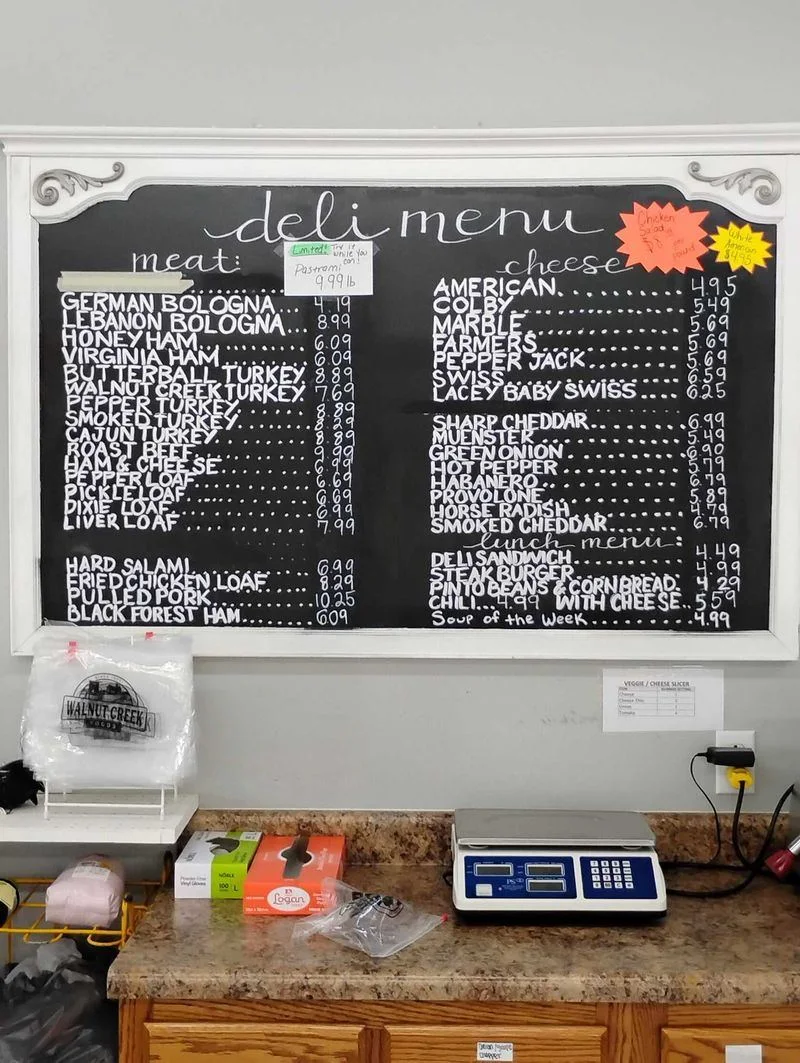 deli menu
Chicken
Salad
$8
per
pound
White
American
$4.95
Limited! Try it
while you
can!
Pastrami
9.99 lb
meat:
GERMAN BOLOGNA.... 4.19
LEBANON BOLOGNA... 8.99
HONEY HAM.......... 6.09
VIRGINIA HAM........ 6.09
BUTTERBALL TURKEY. 8.89
WALNUT CREEK TURKEY. 7.69
PEPPER TURKEY....... 8.89
SMOKED TURKEY...... 8.29
CAJUN TURKEY........ 8.89
ROAST BEEF.......... 9.99
HAM & CHEESE........ 6.99
PEPPER LOAF......... 6.69
PICKLE LOAF......... 6.69
DIXIE LOAF.......... 6.99
LIVER LOAF.......... 7.99
HARD SALAMI......... 6.99
FRIED CHICKEN LOAF.... 8.29
PULLED PORK......... 10.25
BLACK FOREST HAM..... 6.09
cheese
AMERICAN........... 4.95
COLBY.............. 5.49
MARBLE............. 5.69
FARMERS............ 5.69
PEPPER JACK........ 5.69
SWISS.............. 6.59
LACEY BABY SWISS.... 6.25
SHARP CHEDDAR...... 6.99
MUENSTER........... 5.49
GREEN ONION........ 6.90
HOT PEPPER......... 5.79
HABANERO........... 6.79
PROVOLONE.......... 5.89
HORSE RADISH....... 4.79
SMOKED CHEDDAR..... 6.79
lunch menu:
DELI SANDWICH...... 4.49
STEAK BURGER....... 4.99
PINTO BEANS & CORNBREAD. 4.29
CHILI...4.99 WITH CHEESE.. 5.59
Soup of the Week..... 4.99
WALNUT CREEK
FOODS
VEGGIE / CHEESE SLICER
Cheese
Onion
Tomato
NOBLE
Powder-Free
Vinyl Gloves
100 L
Logan